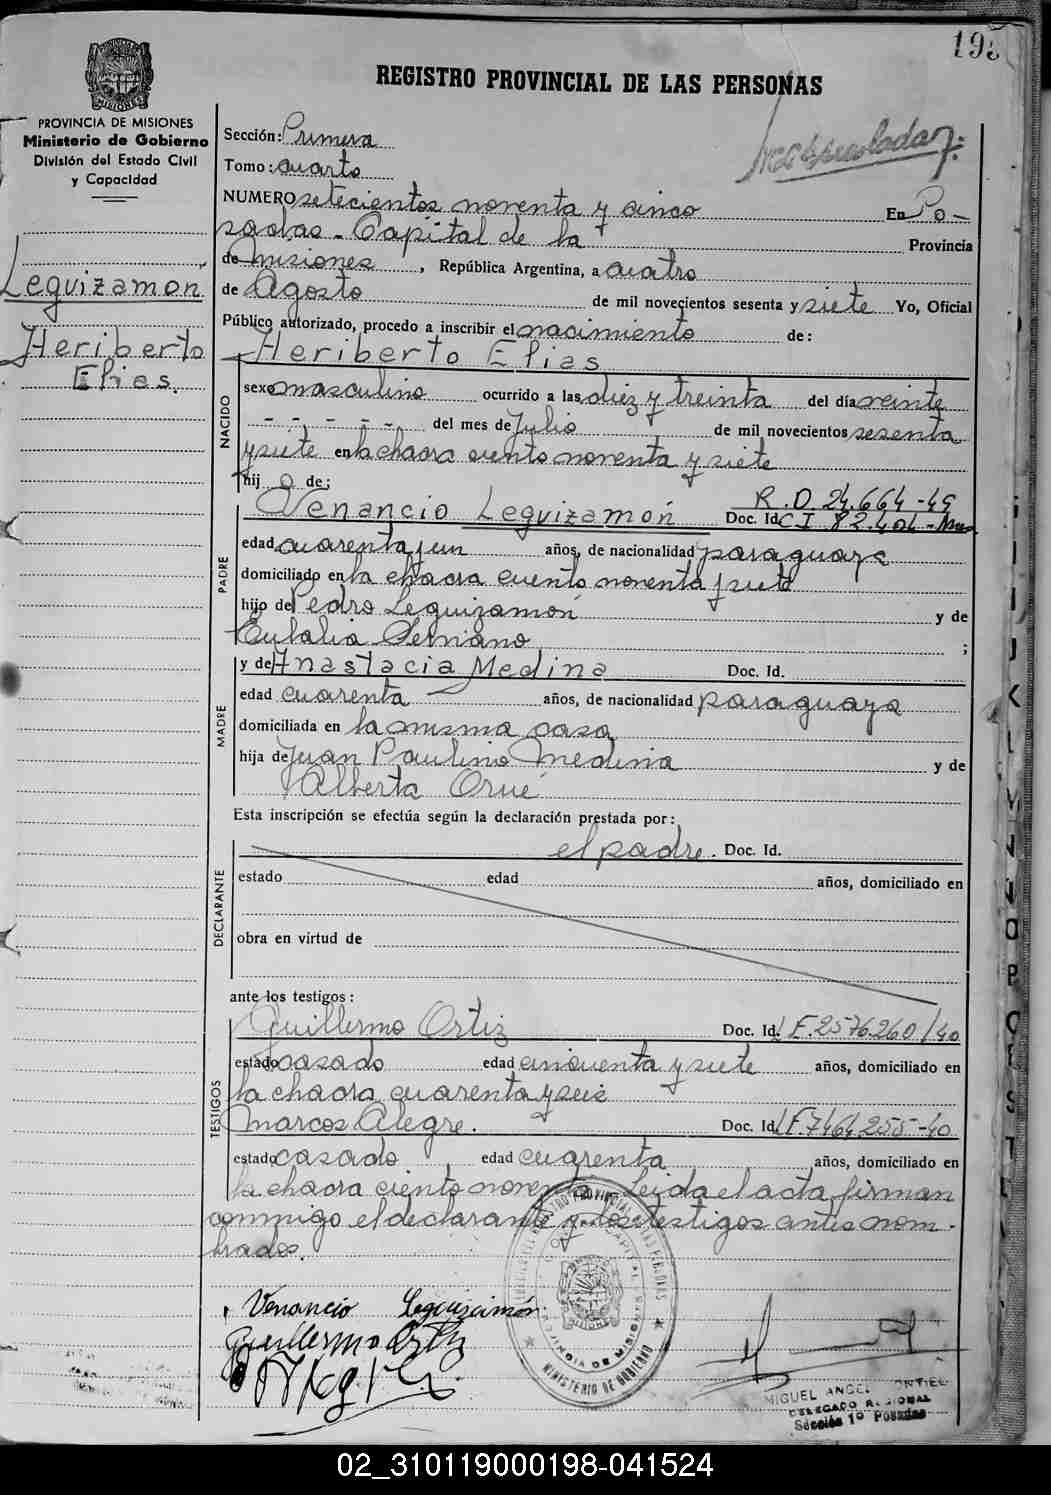 198
REGISTRO PROVINCIAL DE LAS PERSONAS
PROVINCIA DE MISIONES
Ministerio de Gobierno
División del Estado Civil
y Capacidad
Leguizamón
Heriberto
Elias.
Sección: Primera
Tomo: cuarto
NUMERO setecientos noventa y cinco En Po-
sadas - Capital de la Provincia
de misiones, República Argentina, a cuatro
de Agosto de mil novecientos sesenta y siete Yo, Oficial
Público autorizado, procedo a inscribir el nacimiento de:
Heriberto Elias
NACIDO
sexo masculino ocurrido a las diez y treinta del día veinte
- - - - - - del mes de Julio de mil novecientos sesenta
y siete en la chacra ciento noventa y siete
hij o de:
R.D 24.664-49
Venancio Leguizamón Doc. Id. C I 82.404-
PADRE
edad cuarenta y un años, de nacionalidad paraguaya
domiciliado en la chacra ciento noventa y siete
hijo de Pedro Leguizamón y de
Eulalia ;
y de Anastacia Medina Doc. Id.
MADRE
edad cuarenta años, de nacionalidad paraguaya
domiciliada en la misma casa
hija de Juan Paulino Medina y de
Alberta Orué
Esta inscripción se efectúa según la declaración prestada por:
el padre. Doc. Id.
DECLARANTE
estado edad años, domiciliado en
obra en virtud de
ante los testigos:
TESTIGOS
Guillermo Ortiz Doc. Id. L E. 2576.260/40
estado casado edad cincuenta y siete años, domiciliado en
la chacra cuarenta y seis
Marcos Alegre. Doc. Id. L E. 7464.255-40
estado casado edad cuarenta años, domiciliado en
la chacra ciento noventa Leida el acta firman
conmigo el declarante y los testigos antes nom-
brados.
Venancio Leguizamón
Guillermo Ortiz
MINISTERIO DE GOBIERNO
PROVINCIA DE MISIONES
MIGUEL ANGEL MONTIEL
DELEGADO REGIONAL
Sección 1º Posadas
02_310119000198-041524